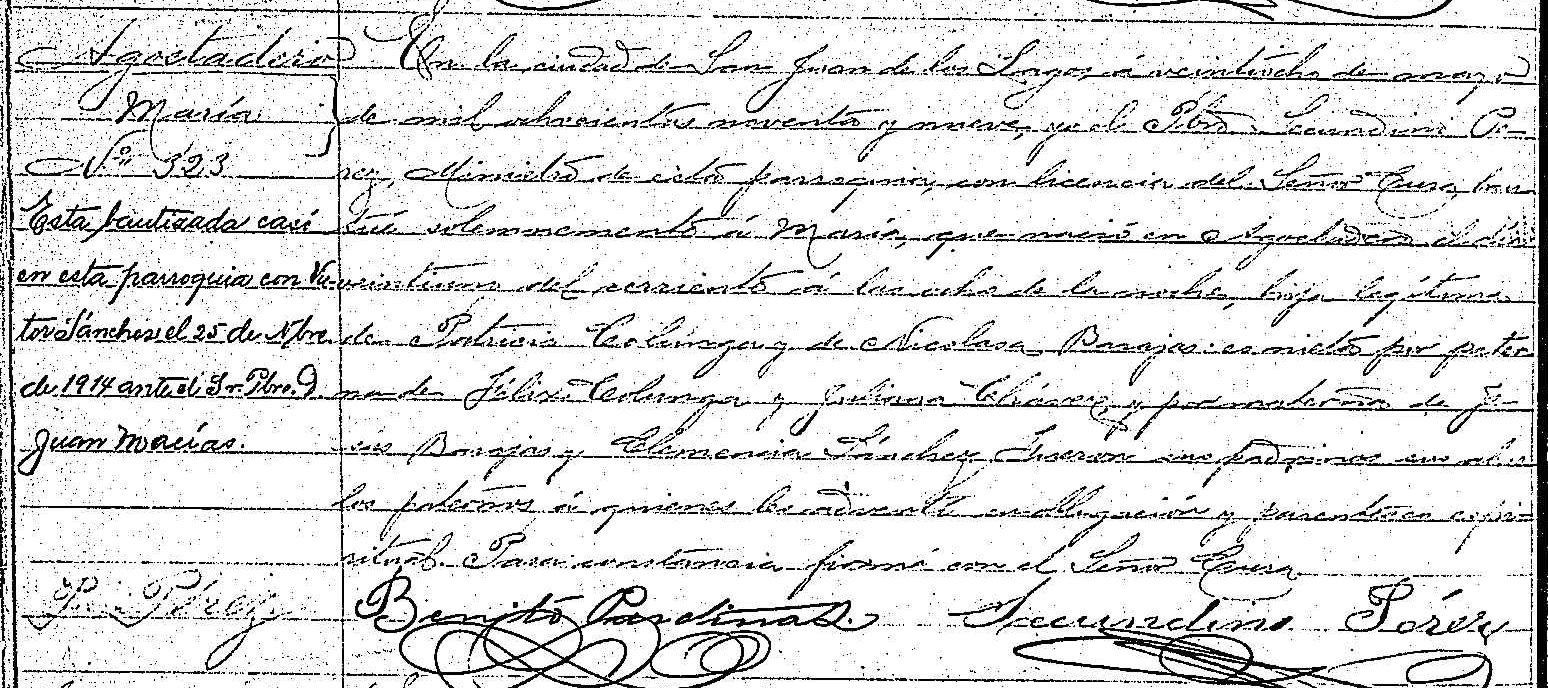 Agostadero
María
Nº 323
Esta bautizada casó
en esta parroquia con Víc-
tor Sánchez el 25 de Nbre.
de 1914 ante el Sr. Pbro. D.
Juan Macías.
P. Pérez
En la ciudad de San Juan de los Lagos á veintiocho de mayo
de mil ochocientos noventa y nueve, yo el Pbro. Secundino Pé-
rez, Ministro de esta parroquia, con licencia del Señor Cura, bau-
ticé solemnemente á María, que nació en Agostadero el día
veintiuno del corriente á las ocho de la noche, hija legítima
de Patricio Colunga y de Nicolasa Barajas: es nieta por pater-
na de Félix Colunga y Juliana Chávez, y por materna de Je-
sús Barajas y Clemencia Sánchez. Fueron sus padrinos sus abue-
los paternos á quienes les advertí su obligación y parentesco espi-
ritual. Para constancia firmé con el Señor Cura
Benito Pardinas. Secundino Pérez